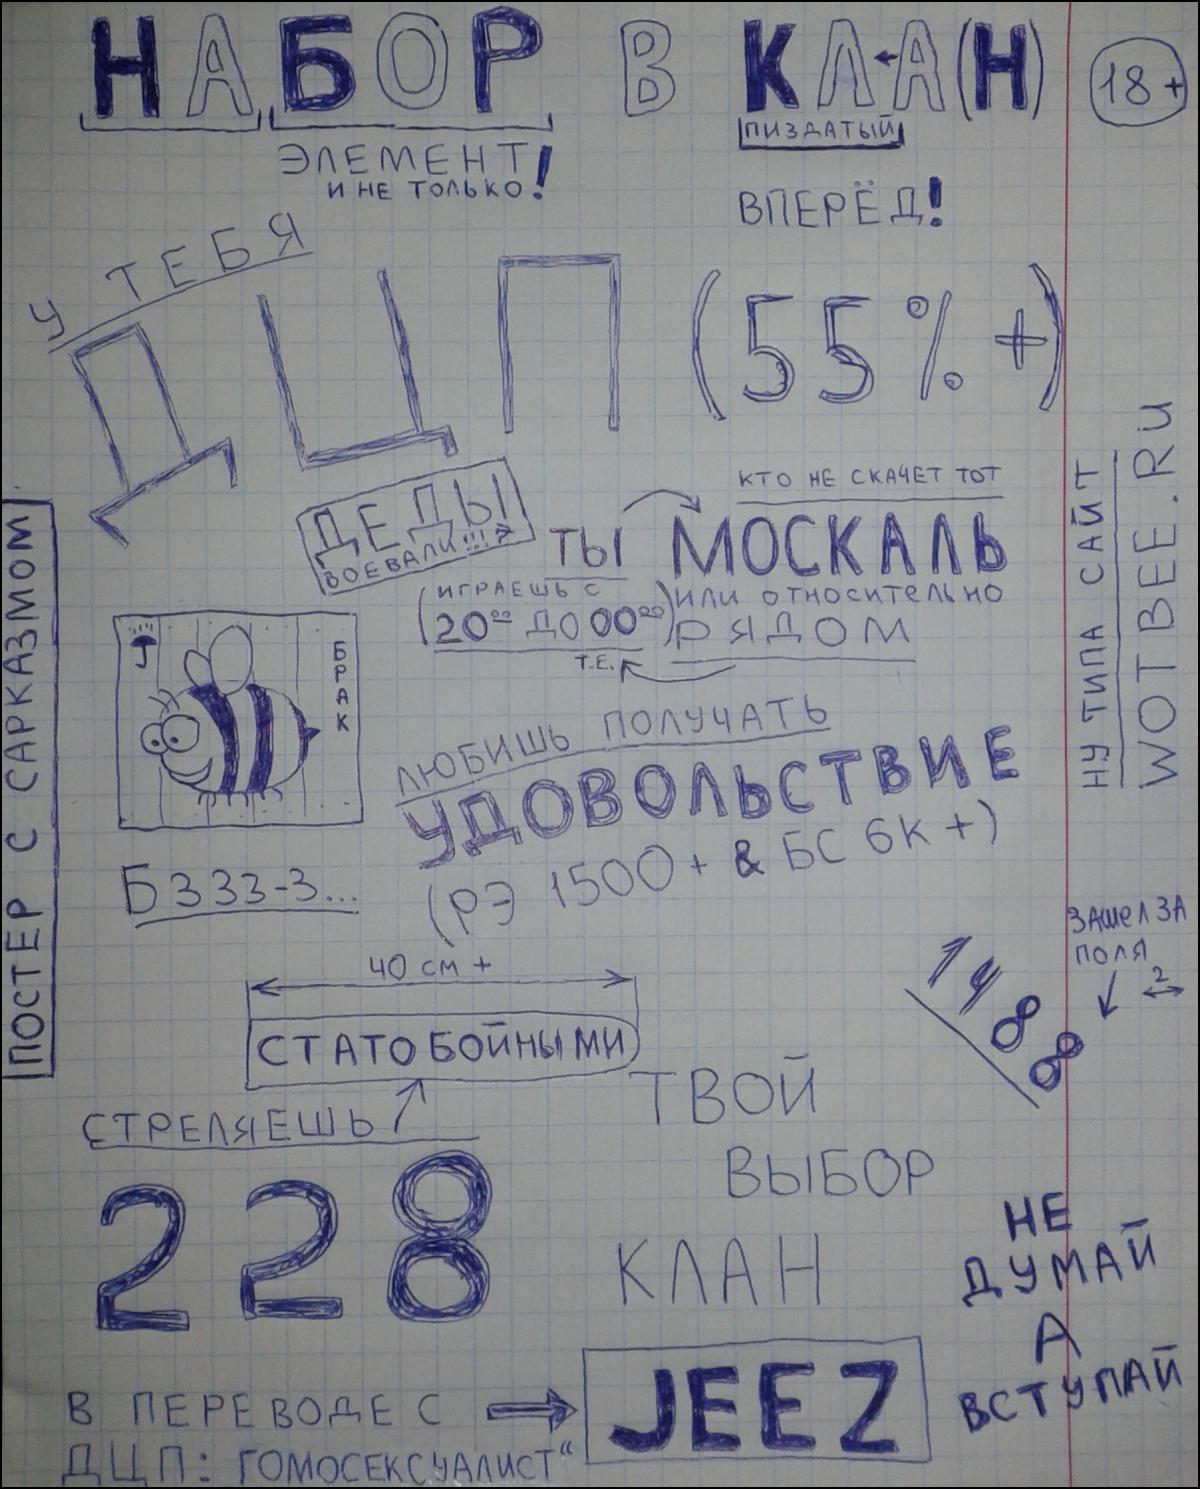 НАБОР В КЛ←А(Н)
18+
ПИЗДАТЫЙ
ЭЛЕМЕНТ!
И НЕ ТОЛЬКО!
ВПЕРЁД!
У ТЕБЯ
ДЦП (55%+)
ДЕДЫ
ВОЕВАЛИ!!!
КТО НЕ СКАЧЕТ ТОТ
ТЫ МОСКАЛЬ
(ИГРАЕШЬ С
20⁰⁰ ДО 00⁰⁰)
ИЛИ ОТНОСИТЕЛЬНО
РЯДОМ
Т.Е.
НУ ТИПА САЙТ
WOTBEE.RU
ПОСТЕР С САРКАЗМОМ
БРАК
БЗЗЗ-З...
ЛЮБИШЬ ПОЛУЧАТЬ
УДОВОЛЬСТВИЕ
(РЭ 1500+ & БС 6К+)
ЗАШЕЛ ЗА
ПОЛЯ
2
1488
40 СМ +
СТАТОБОЙНЫМИ
СТРЕЛЯЕШЬ
228
ТВОЙ
ВЫБОР
КЛАН
JEEZ
НЕ
ДУМАЙ
А
ВСТУПАЙ
В ПЕРЕВОДЕ С
ДЦП: ГОМОСЕКСУАЛИСТ“